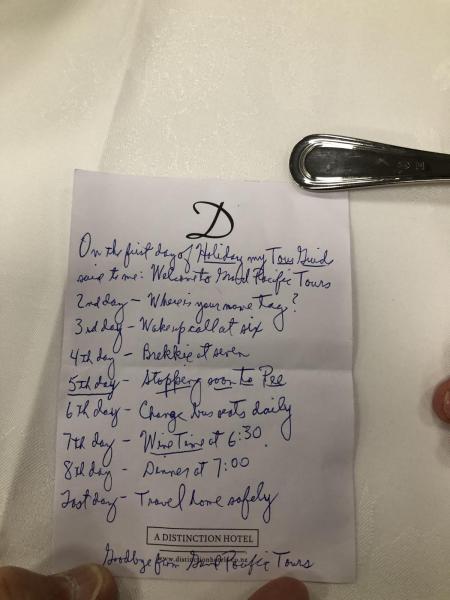 D
On the first day of Holiday my Tour Guid
said to me: Welcome to Grand Pacific Tours
2nd day - Where is your name tag?
3rd day - Wake up call at six
4th day - Brekkie at seven
5th day - Stopping soon to Pee
6th day - Change bus seats daily
7th day - Wine Time at 6:30.
8th day - Dinner at 7:00
Last day - Travel home safely
A DISTINCTION HOTEL
www.distinctionhotels.co.nz
Goodbye from Grand Pacific Tours